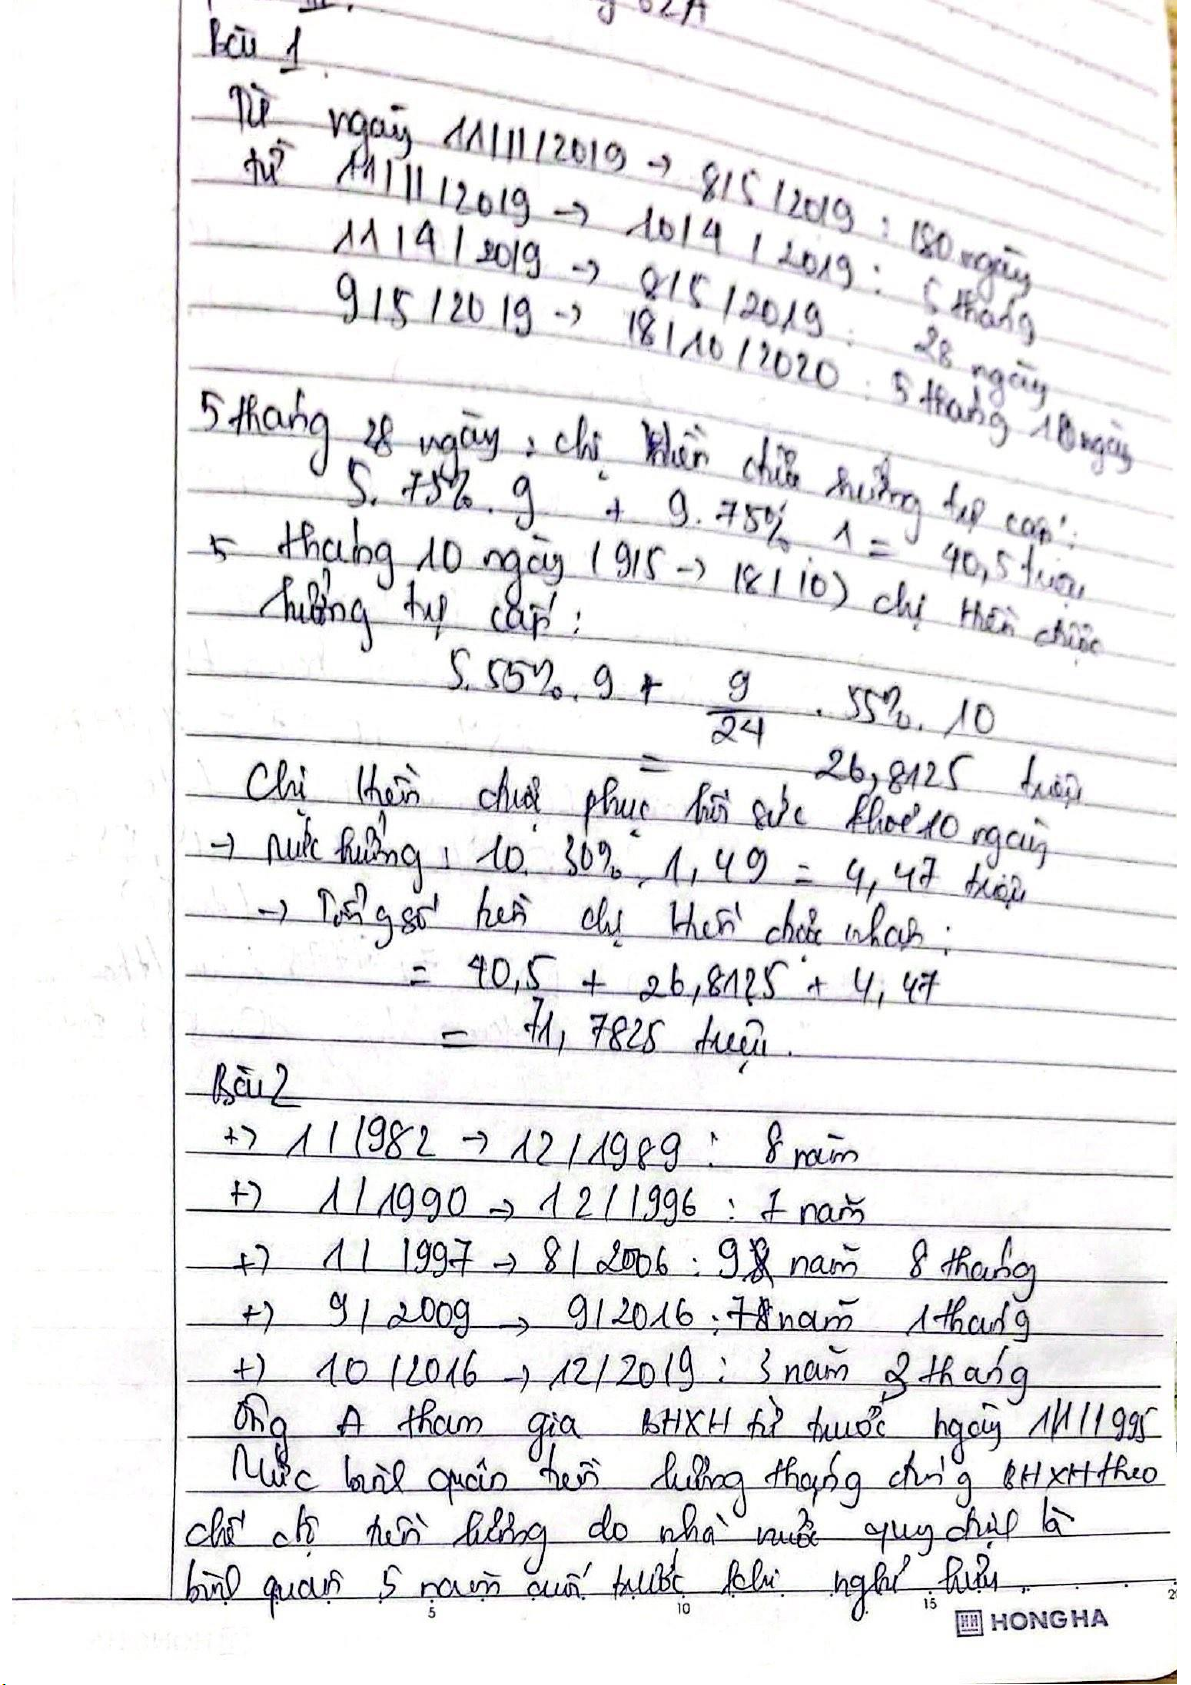 62A
Bài 1
Từ ngày 11/11/2019 → 8/5/2019 : 180 ngày
từ 11/11/2019 → 10/4/2019 : 5 tháng
11/4/2019 → 8/5/2019 : 28 ngày
9/5/2019 → 18/10/2020 : 5 tháng 10 ngày
5 tháng 28 ngày, chị Hiền được hưởng trợ cấp :
5. 75%. 9 + 9. 75%. 1 = 40,5 triệu
5 tháng 10 ngày (9/5 → 18/10) chị Hiền được
hưởng trợ cấp :
5.55%. 9 + 9/24 . 55%. 10
= 26,8125 triệu
Chị Hiền được phục hồi sức khoẻ 10 ngày
→ Mức hưởng : 10. 30%. 1,49 = 4,47 triệu
→ Tổng số tiền chị Hiền được nhận :
= 40,5 + 26,8125 + 4,47
= 71,7825 triệu.
Bài 2
+) 1/1982 → 12/1989 : 8 năm
+) 1/1990 → 12/1996 : 7 năm
+) 1/1997 → 8/2006 : 9 năm 8 tháng
+) 9/2009 → 9/2016 : 7 năm 1 tháng
+) 10/2016 → 12/2019 : 3 năm 3 tháng
Ông A tham gia BHXH từ trước ngày 1/1/1995
Mức bình quân tiền lương tháng đóng BHXH theo
chế độ tiền lương do nhà nước quy định là
bình quân 5 năm cuối trước khi nghỉ hưu.
5 10 15 20
HONG HA